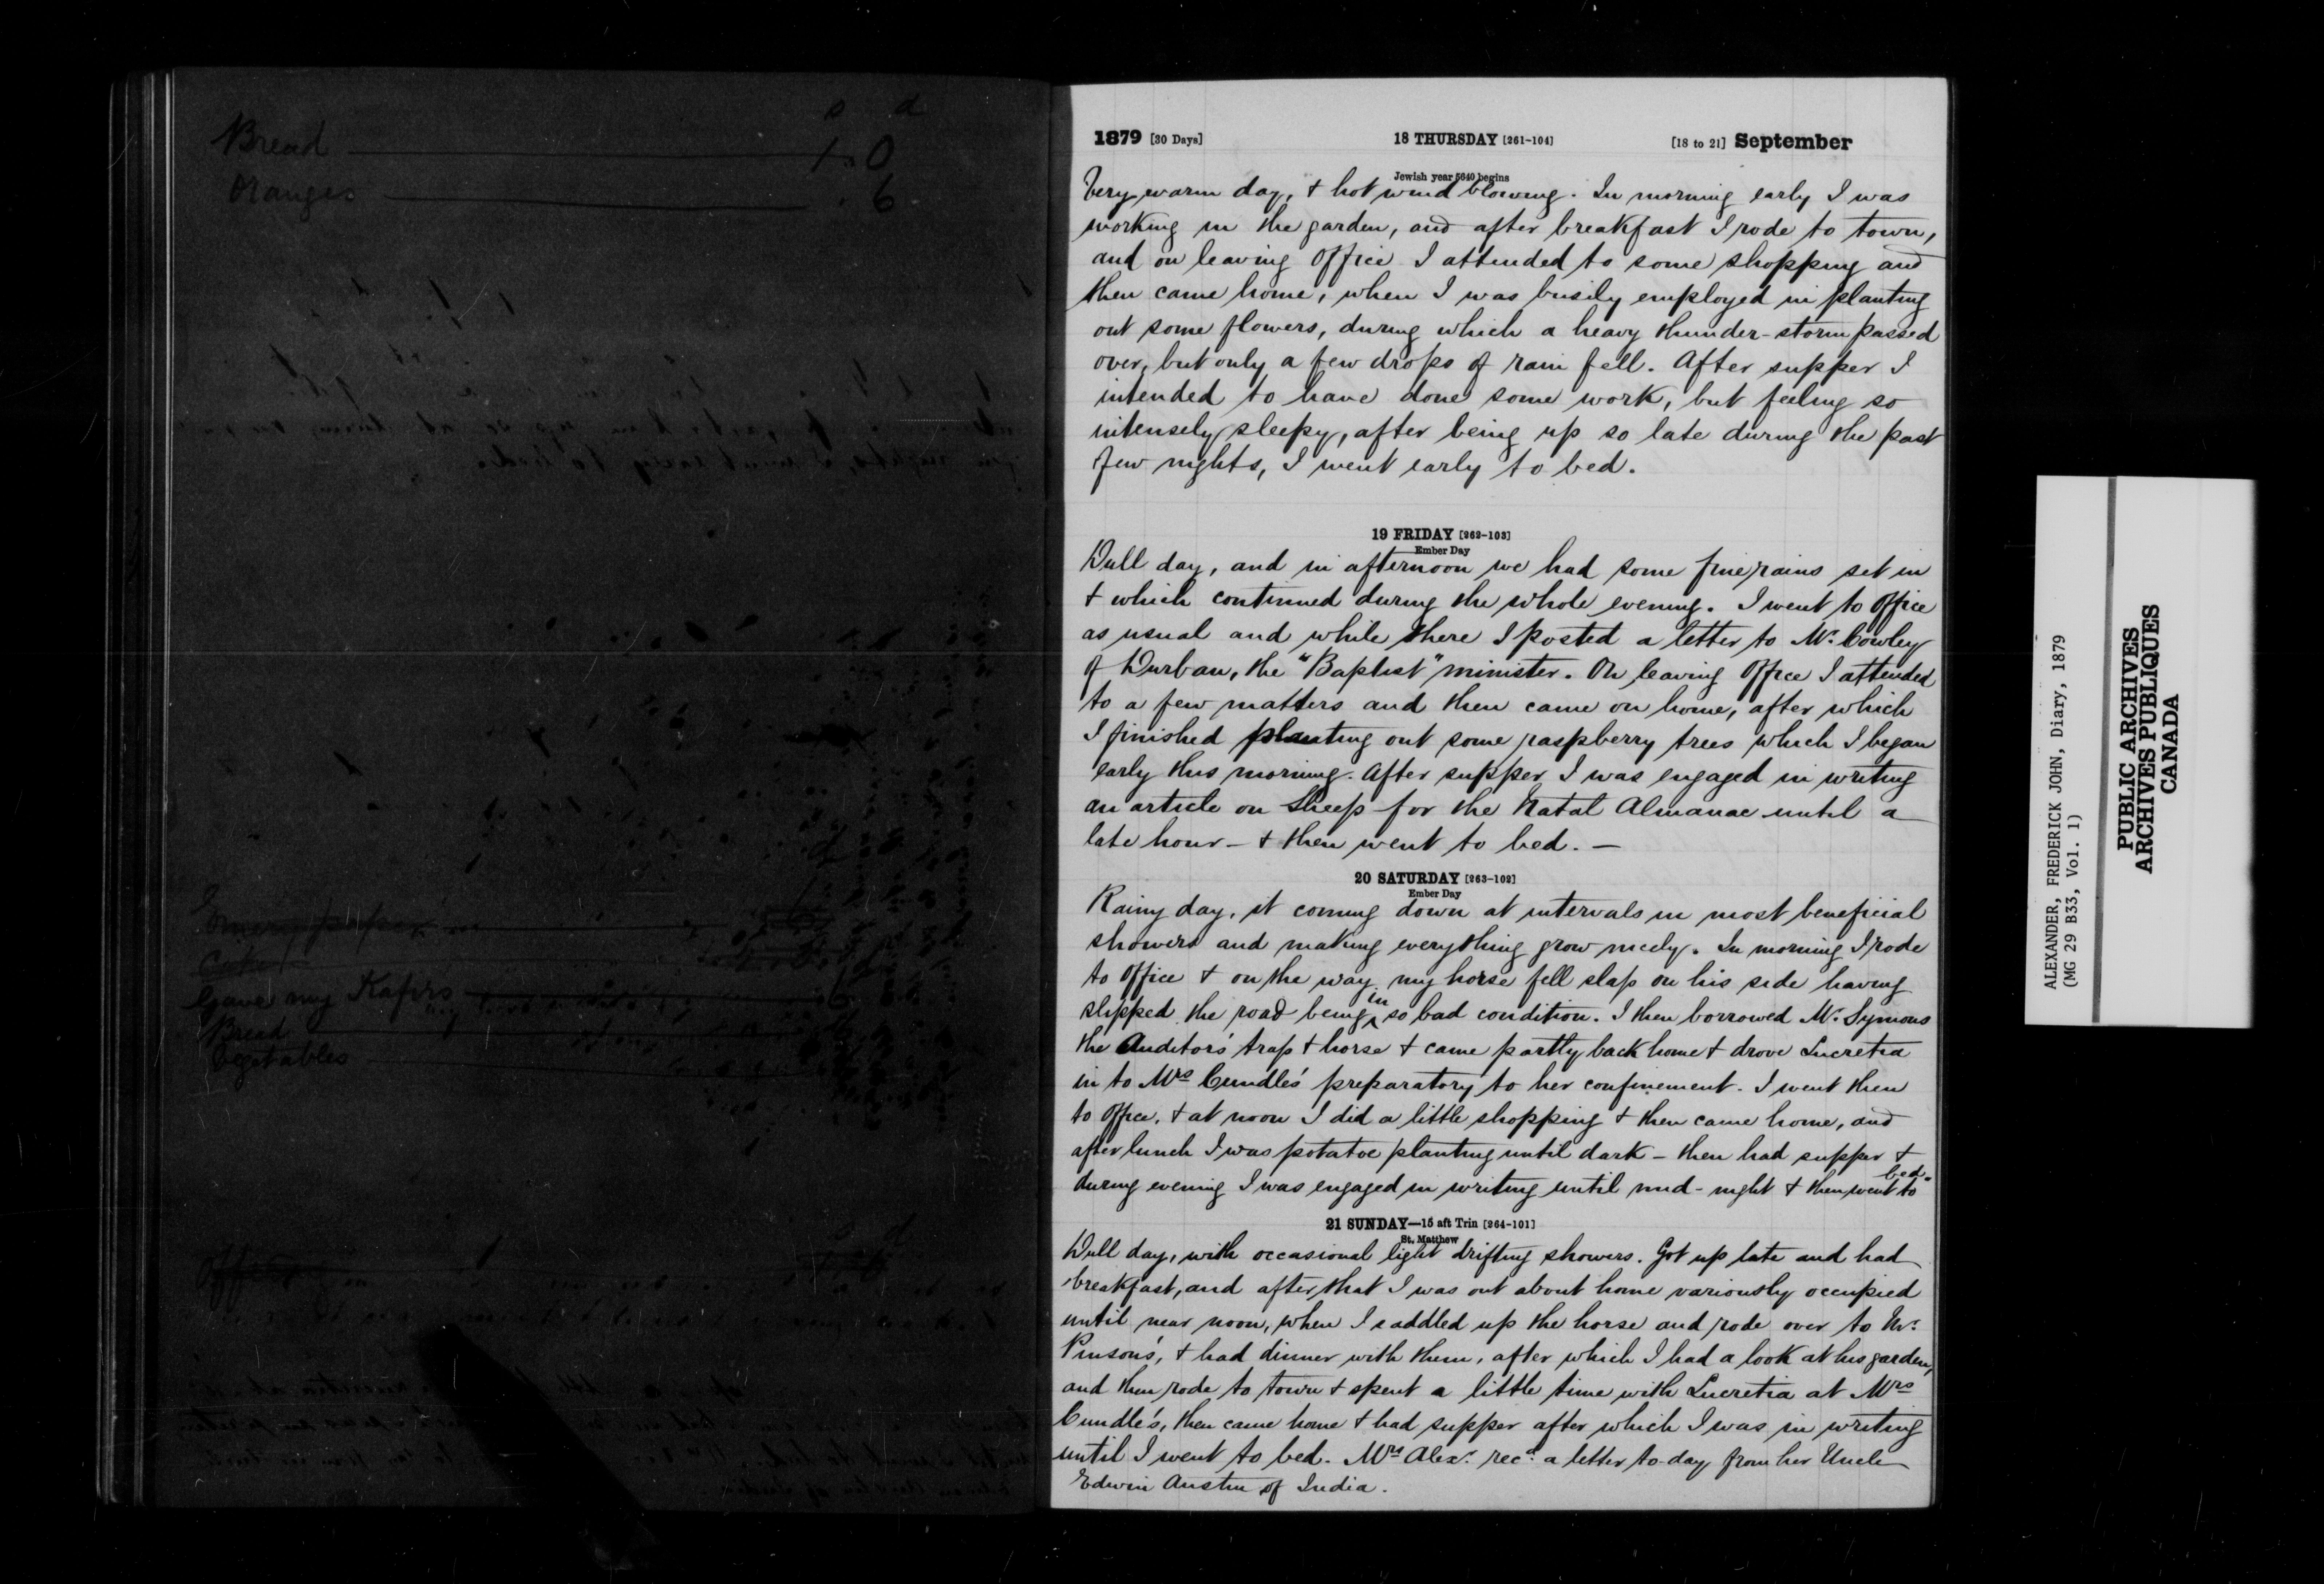 s d
Bread 1 " 0
Oranges . 6
Gave my Kafirs
Bread
Vegetables
1879 [30 Days] 18 THURSDAY [261-104] [18 to 21] September
Jewish year 5640 begins
Very warm day, + hot wind blowing. In morning early I was
working in the garden, and after breakfast I rode to town,
and on leaving Office I attended to some shopping and
then came home, when I was busily employed in planting
out some flowers, during which a heavy thunder-storm passed
over, but only a few drops of rain fell. After supper I
intended to have done some work, but feeling so
intensely sleepy, after being up so late during the past
few nights, I went early to bed.
19 FRIDAY [262-103]
Ember Day
Dull day, and in afternoon we had some fine rains set in
+ which continued during the whole evening. I went to Office
as usual and while there I posted a letter to Mr. Cowley
of Durban, the "Baptist" minister. On leaving Office I attended
to a few matters and then came on home, after which
I finished planting out some raspberry trees which I began
early this morning. After supper I was engaged in writing
an article on Sheep for the Natal Almanac until a
late hour - + then went to bed. -
20 SATURDAY [263-102]
Ember Day
Rainy day, it coming down at intervals in most beneficial
showers and making everything grow nicely. In morning I rode
to Office + on the way my horse fell slap on his side having
slipped the road being in so bad condition. I then borrowed Mr. Symons
the Auditors' trap + horse + came partly back home + drove Lucretia
in to Mrs Cundle's preparatory to her confinement. I went then
to Office, + at noon I did a little shopping + then came home, and
after lunch I was potatoe planting until dark - then had supper +
during evening I was engaged in writing until mid-night + then went to bed.
21 SUNDAY—15 aft Trin [264-101]
St. Matthew
Dull day, with occasional light drifting showers. Got up late and had
breakfast, and after that I was out about home variously occupied
until near noon, when I saddled up the horse and rode over to Mr.
Pinson's, + had dinner with them, after which I had a look at his garden,
and then rode to town + spent a little time with Lucretia at Mrs
Cundle's, then came home + had supper after which I was in writing
until I went to bed. Mrs Alexr. recd. a letter to-day from her Uncle
Edwin Austin of India.
ALEXANDER, FREDERICK JOHN, Diary, 1879
(MG 29 B33, Vol. 1)
PUBLIC ARCHIVES
ARCHIVES PUBLIQUES
CANADA